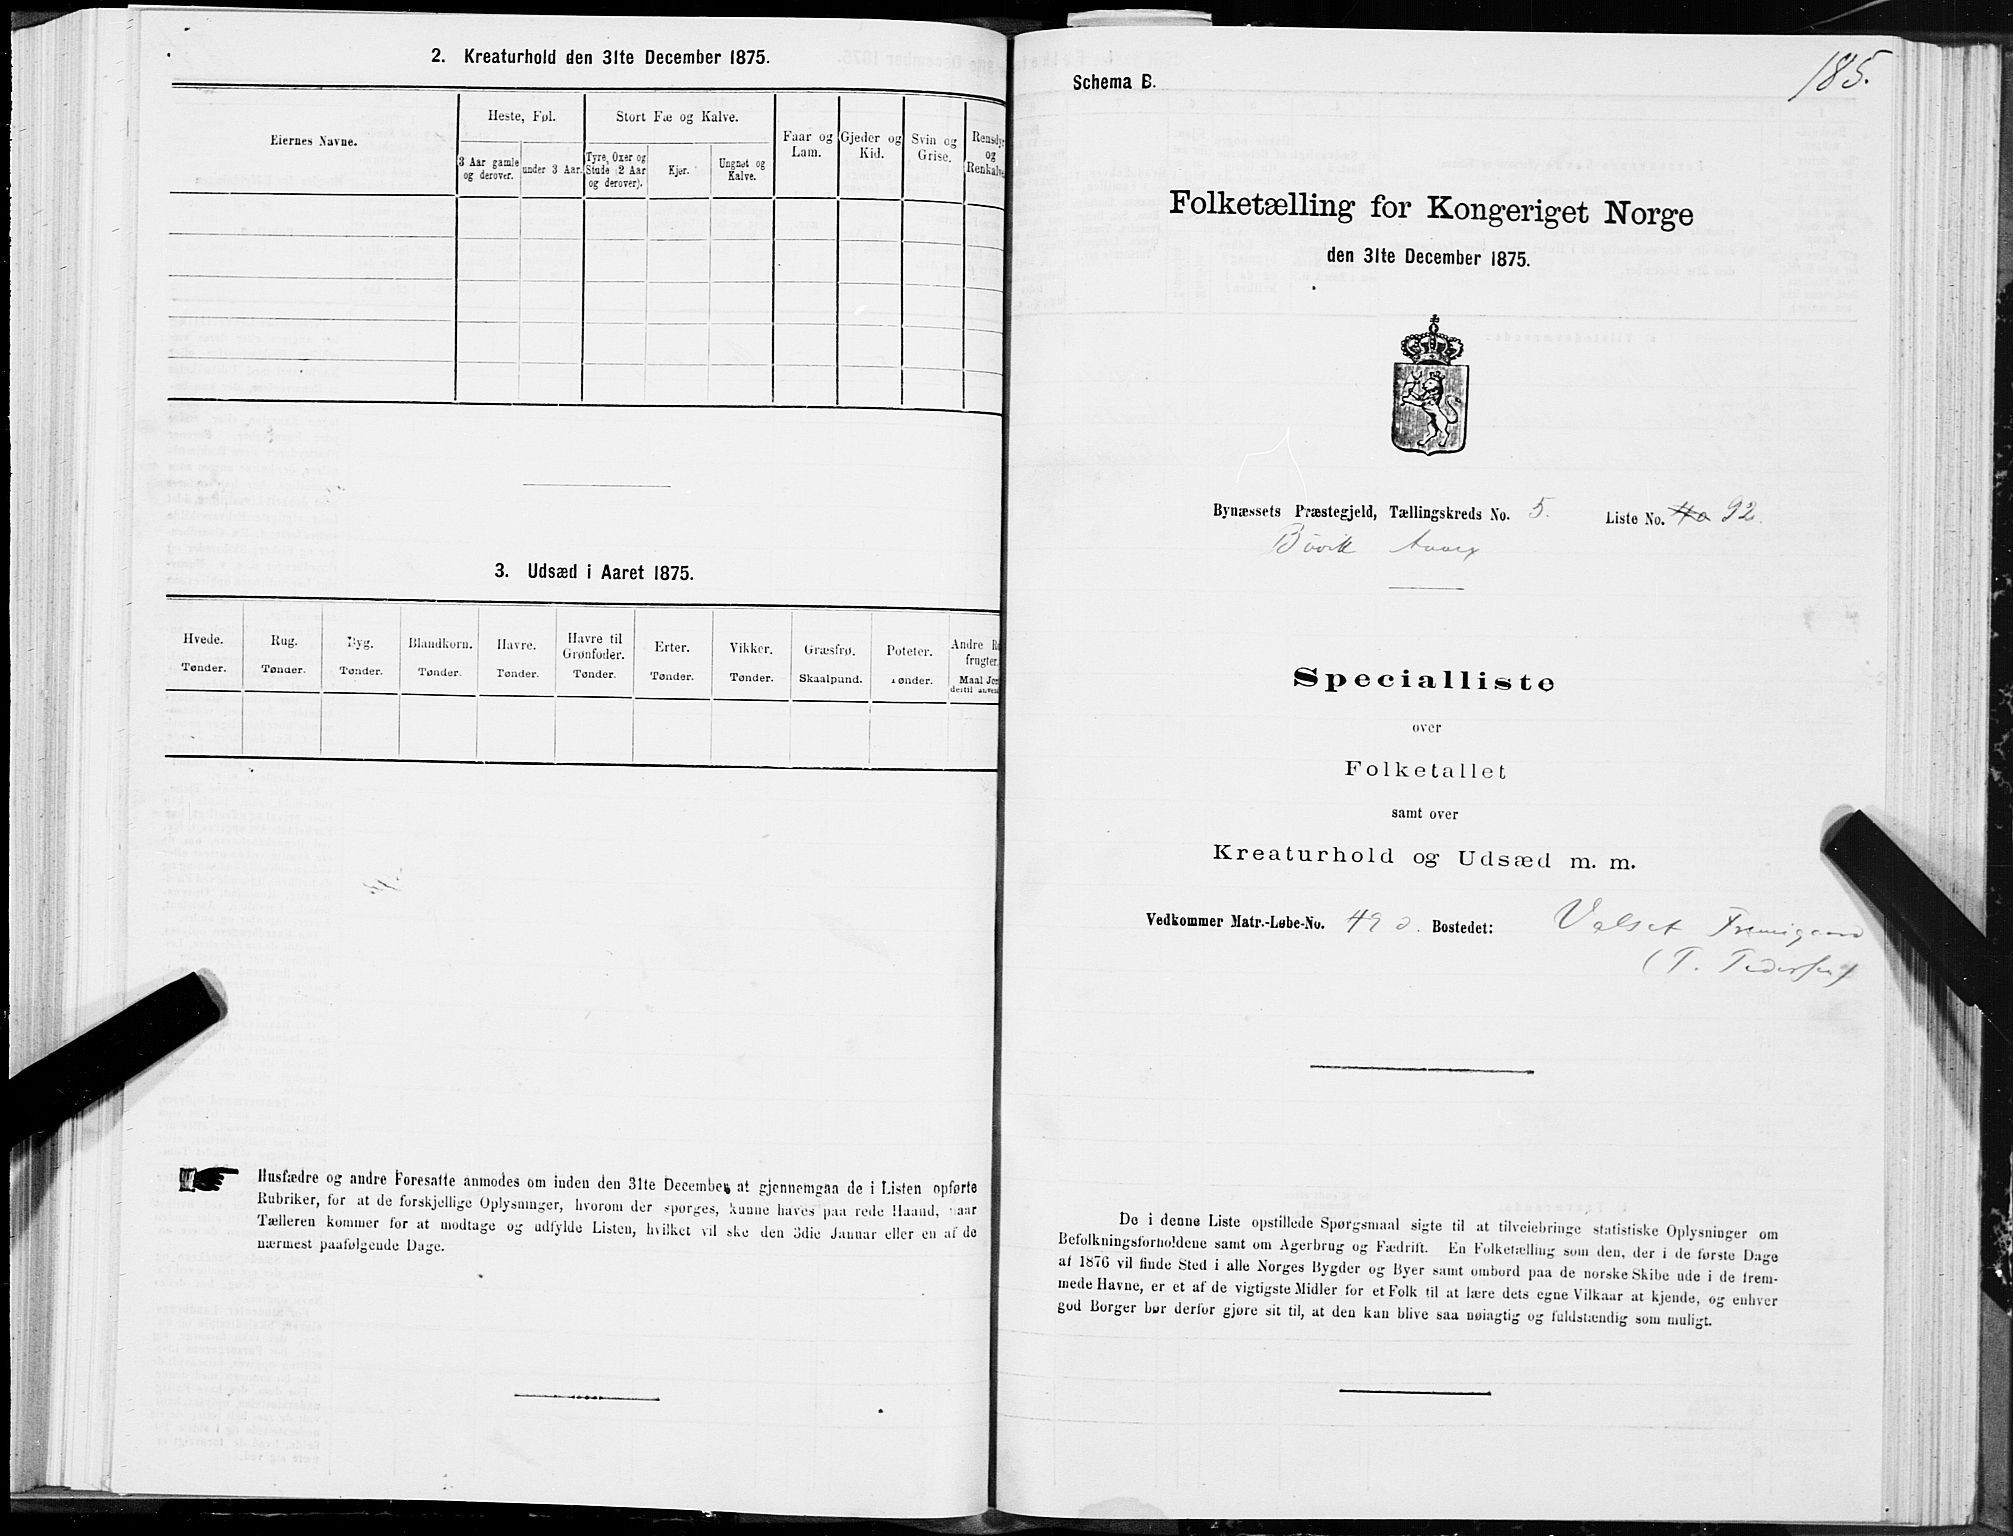 2. Kreaturhold den 31te December 1875.
Eiernes Navne.
Heste, Føl.
Stort Fæ og Kalve.
Faar og Lam.
Gjeder og Kid.
Svin og Grise.
Rensdyr og Renkalve
3 Aar gamle og derover.
under 3 Aar.
Tyre, Oxer og Stude (2 Aar og derover).
Kjør.
Ungnøt og Kalve.
3. Udsæd i Aaret 1875.
Hvede.
Rug.
Byg.
Blandkorn.
Havre.
Havre til Grønfoder.
Erter.
Vikker.
Græsfrø.
Poteter.
Andre
frugter.
Tønder.
Tønder.
Tønder.
Tønder.
Tønder.
Tønder.
Tønder.
Tønder.
Skaalpund.
Tønder.
Maal
dertil
Husfædre og andre Foresatte anmodes om inden den 31te December at gjennemgaa de i Listen opførte
Rubriker, for at de forskjellige Oplysninger, hvorom der spørges, kunne haves paa rede Haand, naar
Tælleren kommer for at modtage og udfylde Listen, hvilket vil ske den 3die Januar eller en af de
nærmest paafølgende Dage.
185.
Schema B.
Folketælling for Kongeriget Norge
den 31te December 1875.
Bynæssets Præstegjeld, Tællingskreds No. 5. Liste No. 92.
Specialliste
over
Folketallet
samt over
Kreaturhold og Udsæd m. m.
Vedkommer Matr.-Løbe-No. 49 Bostedet: Valset
(T. Pedersen)
De i denne Liste opstillede Spørgsmaal sigte til at tilveiebringe statistiske Oplysninger om
Befolkningsforholdene samt om Agerbrug og Fædrift. En Folketælling som den, der i de første Dage
af 1876 vil finde Sted i alle Norges Bygder og Byer samt ombord paa de norske Skibe ude i de frem-
mede Havne, er et af de vigtigste Midler for et Folk til at lære dets egne Vilkaar at kjende, og enhver
god Borger bør derfor gjøre sit til, at den kan blive saa nøiagtig og fuldstændig som muligt.